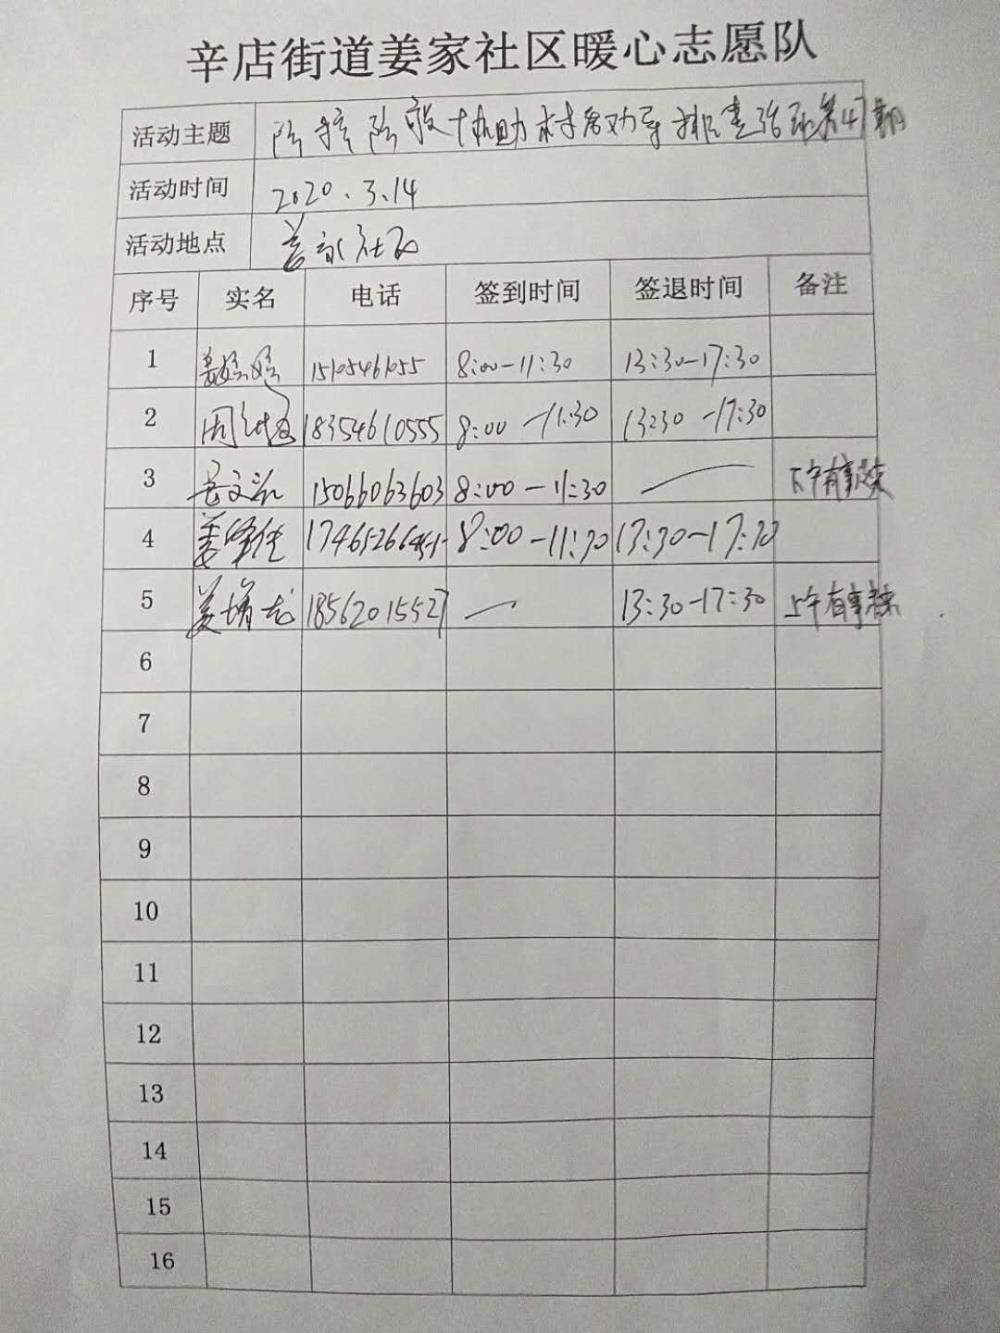 辛店街道姜家社区暖心志愿队
活动主题 协助 排查 第47期
活动时间 2020.3.14
活动地点 姜家社区
序号 实名 电话 签到时间 签退时间 备注
1 8:00-11:30 13:30-17:30
2 周 18354610555 8:00-11:30 13:30-17:30
3 15066063603 8:00-11:30 — 下午有事
4 姜 8:00-11:30 13:30-17:30
5 姜 18562015527 — 13:30-17:30 上午有事
6
7
8
9
10
11
12
13
14
15
16